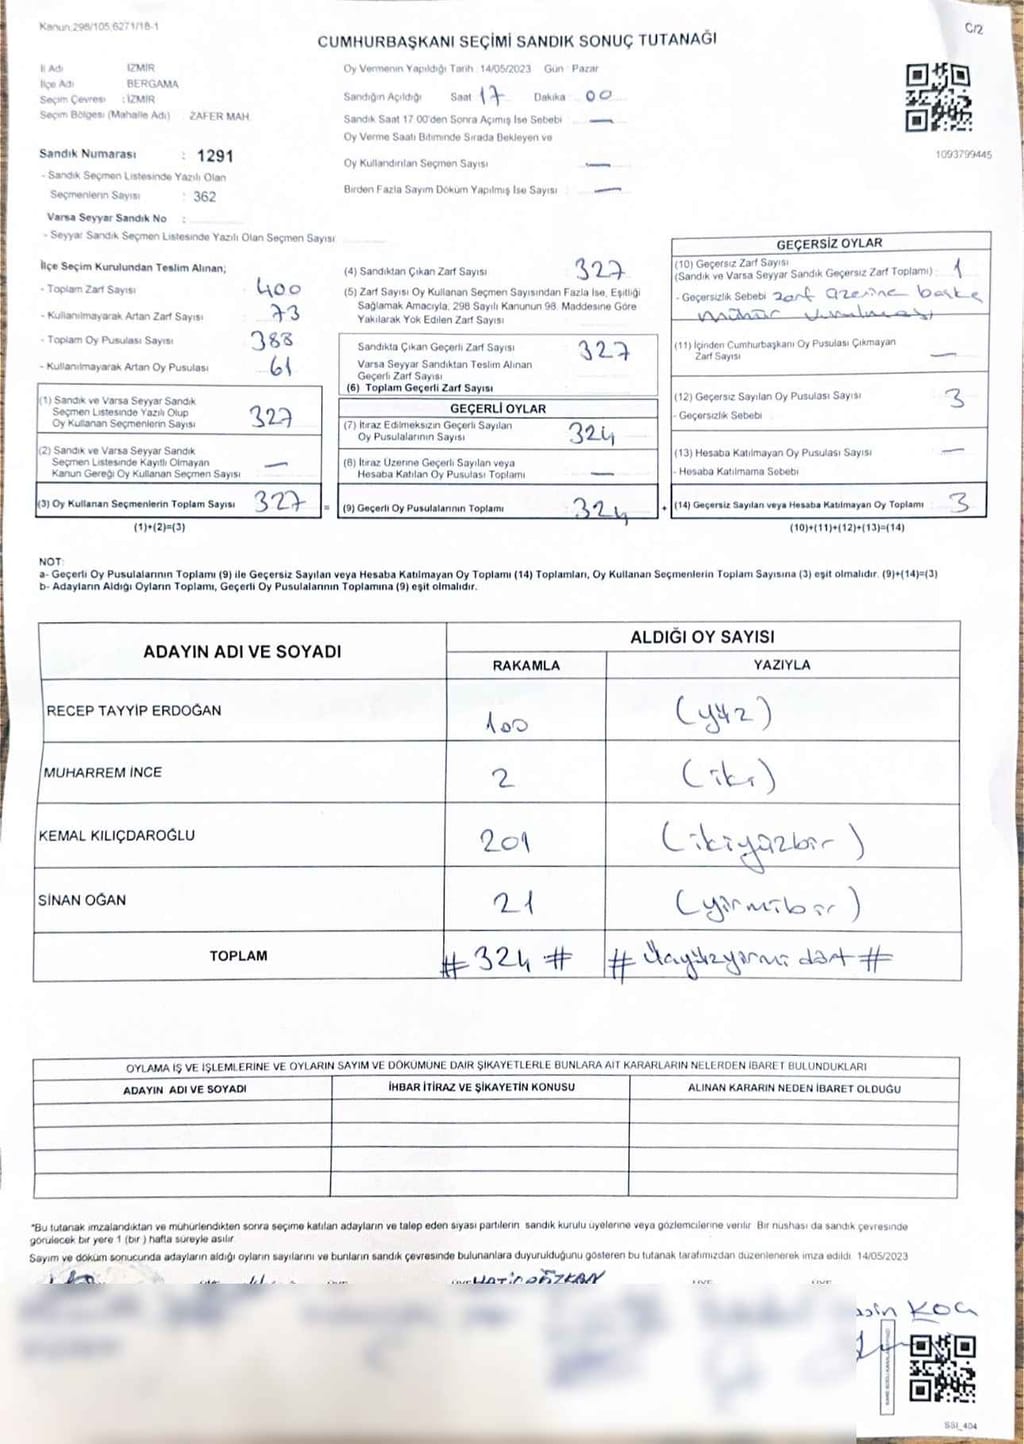 Kanun.298/105,6271/18-1
C/2
CUMHURBAŞKANI SEÇİMİ SANDIK SONUÇ TUTANAĞI
İl Adı İZMİR
İlçe Adı BERGAMA
Seçim Çevresi : İZMİR
Seçim Bölgesi (Mahalle Adı) ZAFER MAH.
Sandık Numarası : 1291
- Sandık Seçmen Listesinde Yazılı Olan
Seçmenlerin Sayısı : 362
Varsa Seyyar Sandık No :
- Seyyar Sandık Seçmen Listesinde Yazılı Olan Seçmen Sayısı
Oy Vermenin Yapıldığı Tarih 14/05/2023 Gün : Pazar
Sandığın Açıldığı Saat 17 Dakika : 00
Sandık Saat 17 00'den Sonra Açımış İse Sebebi —
Oy Verme Saati Bitiminde Sırada Bekleyen ve
Oy Kullandırılan Seçmen Sayısı —
Birden Fazla Sayım Döküm Yapılmış İse Sayısı —
1093799445
İlçe Seçim Kurulundan Teslim Alınan;
- Toplam Zarf Sayısı 400
- Kullanılmayarak Artan Zarf Sayısı 73
- Toplam Oy Pusulası Sayısı 388
- Kullanılmayarak Artan Oy Pusulası 61
(1) Sandık ve Varsa Seyyar Sandık
Seçmen Listesinde Yazılı Olup
Oy Kullanan Seçmenlerin Sayısı 327
(2) Sandık ve Varsa Seyyar Sandık
Seçmen Listesinde Kayıtlı Olmayan
Kanun Gereği Oy Kullanan Seçmen Sayısı —
(3) Oy Kullanan Seçmenlerin Toplam Sayısı 327 =
(1)+(2)=(3)
(4) Sandıktan Çıkan Zarf Sayısı 327
(5) Zarf Sayısı Oy Kullanan Seçmen Sayısından Fazla İse, Eşitliği
Sağlamak Amacıyla, 298 Sayılı Kanunun 98. Maddesine Göre
Yakılarak Yok Edilen Zarf Sayısı
Sandıkta Çıkan Geçerli Zarf Sayısı 327
Varsa Seyyar Sandıktan Teslim Alınan
Geçerli Zarf Sayısı
(6) Toplam Geçerli Zarf Sayısı
GEÇERLİ OYLAR
(7) İtiraz Edilmeksizin Geçerli Sayılan
Oy Pusulalarının Sayısı 324
(8) İtiraz Üzerine Geçerli Sayılan veya
Hesaba Katılan Oy Pusulası Toplamı —
(9) Geçerli Oy Pusulalarının Toplamı 324 +
GEÇERSİZ OYLAR
(10) Geçersiz Zarf Sayısı
(Sandık ve Varsa Seyyar Sandık Geçersiz Zarf Toplamı) : 1
- Geçersizlik Sebebi zarf üzerine başka
mühür vurulması
(11) İçinden Cumhurbaşkanı Oy Pusulası Çıkmayan
Zarf Sayısı —
(12) Geçersiz Sayılan Oy Pusulası Sayısı 3
- Geçersizlik Sebebi
(13) Hesaba Katılmayan Oy Pusulası Sayısı —
- Hesaba Katılmama Sebebi
(14) Geçersiz Sayılan veya Hesaba Katılmayan Oy Toplamı 3
(10)+(11)+(12)+(13)=(14)
NOT:
a- Geçerli Oy Pusulalarının Toplamı (9) ile Geçersiz Sayılan veya Hesaba Katılmayan Oy Toplamı (14) Toplamları, Oy Kullanan Seçmenlerin Toplam Sayısına (3) eşit olmalıdır. (9)+(14)=(3)
b- Adayların Aldığı Oyların Toplamı, Geçerli Oy Pusulalarının Toplamına (9) eşit olmalıdır.
ADAYIN ADI VE SOYADI ALDIĞI OY SAYISI
RAKAMLA YAZIYLA
RECEP TAYYİP ERDOĞAN 100 (yüz)
MUHARREM İNCE 2 (iki)
KEMAL KILIÇDAROĞLU 201 (ikiyüzbir)
SİNAN OĞAN 21 (yirmibir)
TOPLAM #324# #üçyüzyirmi dört#
OYLAMA İŞ VE İŞLEMLERİNE VE OYLARIN SAYIM VE DÖKÜMÜNE DAİR ŞİKAYETLERLE BUNLARA AİT KARARLARIN NELERDEN İBARET BULUNDUKLARI
ADAYIN ADI VE SOYADI İHBAR İTİRAZ VE ŞİKAYETİN KONUSU ALINAN KARARIN NEDEN İBARET OLDUĞU
*Bu tutanak imzalandıktan ve mühürlendikten sonra seçime katılan adayların ve talep eden siyasi partilerin sandık kurulu üyelerine veya gözlemcilerine verilir. Bir nüshası da sandık çevresinde
görülecek bir yere 1 (bir) hafta süreyle asılır.
Sayım ve döküm sonucunda adayların aldığı oyların sayılarını ve bunların sandık çevresinde bulunanlara duyurulduğunu gösteren bu tutanak tarafımızdan düzenlenerek imza edildi. 14/05/2023
ÖZKAN
KOÇ
SSI_404